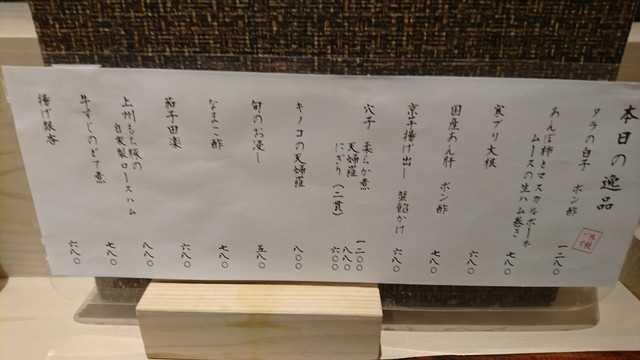 本日の逸品
タラの白子 ポン酢 一二八〇
あんぽ柿とマスカルポーネ
ムースの生ハム巻き 七八〇
寒ブリ大根 六八〇
国産あん肝 ポン酢 七八〇
京芋揚げ出し 蟹餡かけ 六八〇
穴子 柔らか煮 一二〇〇
天婦羅 八八〇
にぎり(二貫) 六〇〇
キノコの天婦羅 八〇〇
旬のお浸し 五八〇
なまこ酢 七八〇
茄子田楽 六八〇
上州もち豚の
自家製ロースハム 八八〇
牛すじのどて煮 七八〇
揚げ銀杏 六八〇